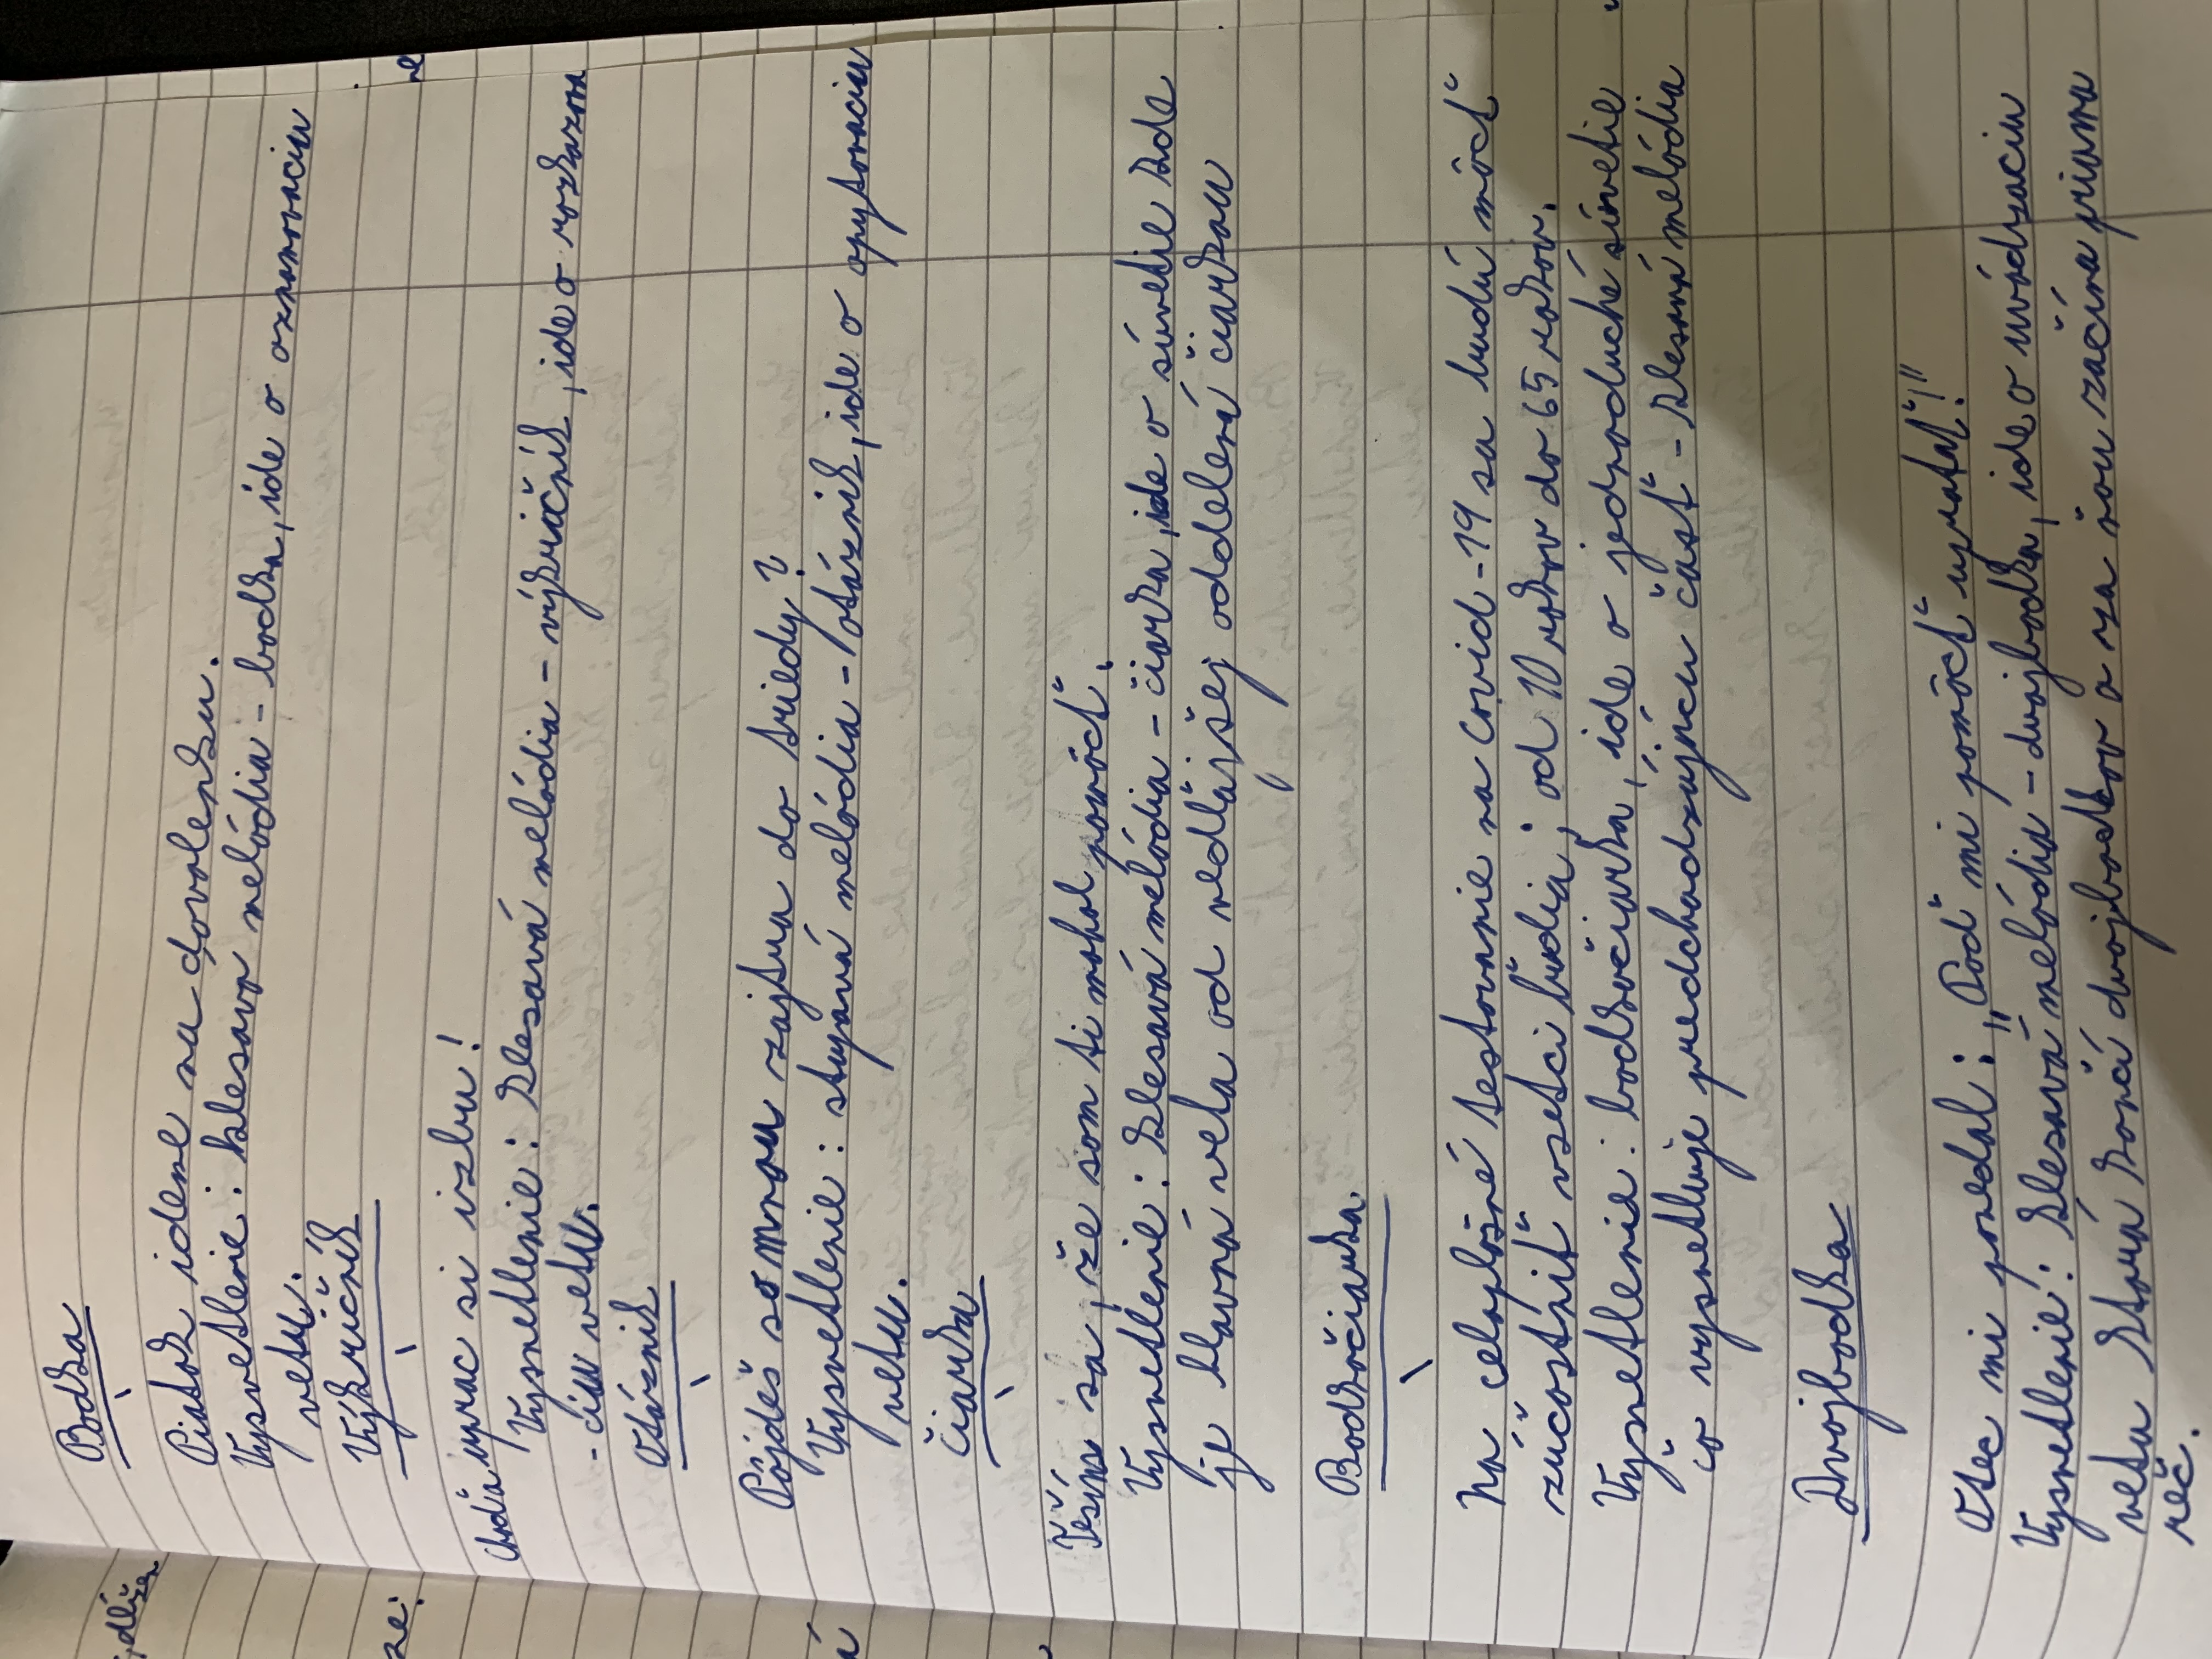 Bodka
Piatok ideme na dovolenku.
Vysvetlenie: klesava melódia - bodka, ide o oznamovaciu
vetu.
Výkričník
Choď a uprac si izbu!
Vysvetlenie: klesavá melódia - výkričník, ide o rozkazova
- ciu vetu.
Otáznik
Pôjdeš so mnou zajtra do triedy?
Vysvetlenie: stupavá melódia - otáznik, ide o opytovaciu
vetu.
Čiarka
Těším sa, že som ti mohol pomôcť.
Vysvetlenie: klesavá melódia - čiarka, ide o súvetie kde
je hlavná veta od vedľajšej oddelená čiarkou
Bodkočiarka
Na celoplošné testovanie na covid-19 sa budú môcť
zúčastniť vsetci ľudia; od 10 rokov do 65 rokov.
Vysvetlenie: bodkočiarka, ide o jednoduché súvetie
čo vysvetluje predchadzújúcu časť - klesavá melódia
Dvojbodka
Otec mi povedal: „Poď mi pomôcť upratať!"
Vysvetlenie: klesavá melódia - dvojbodka, ide o uvádzaciu
vetu ktorá končí dvojbodkov a za ňou začína priama
reč.